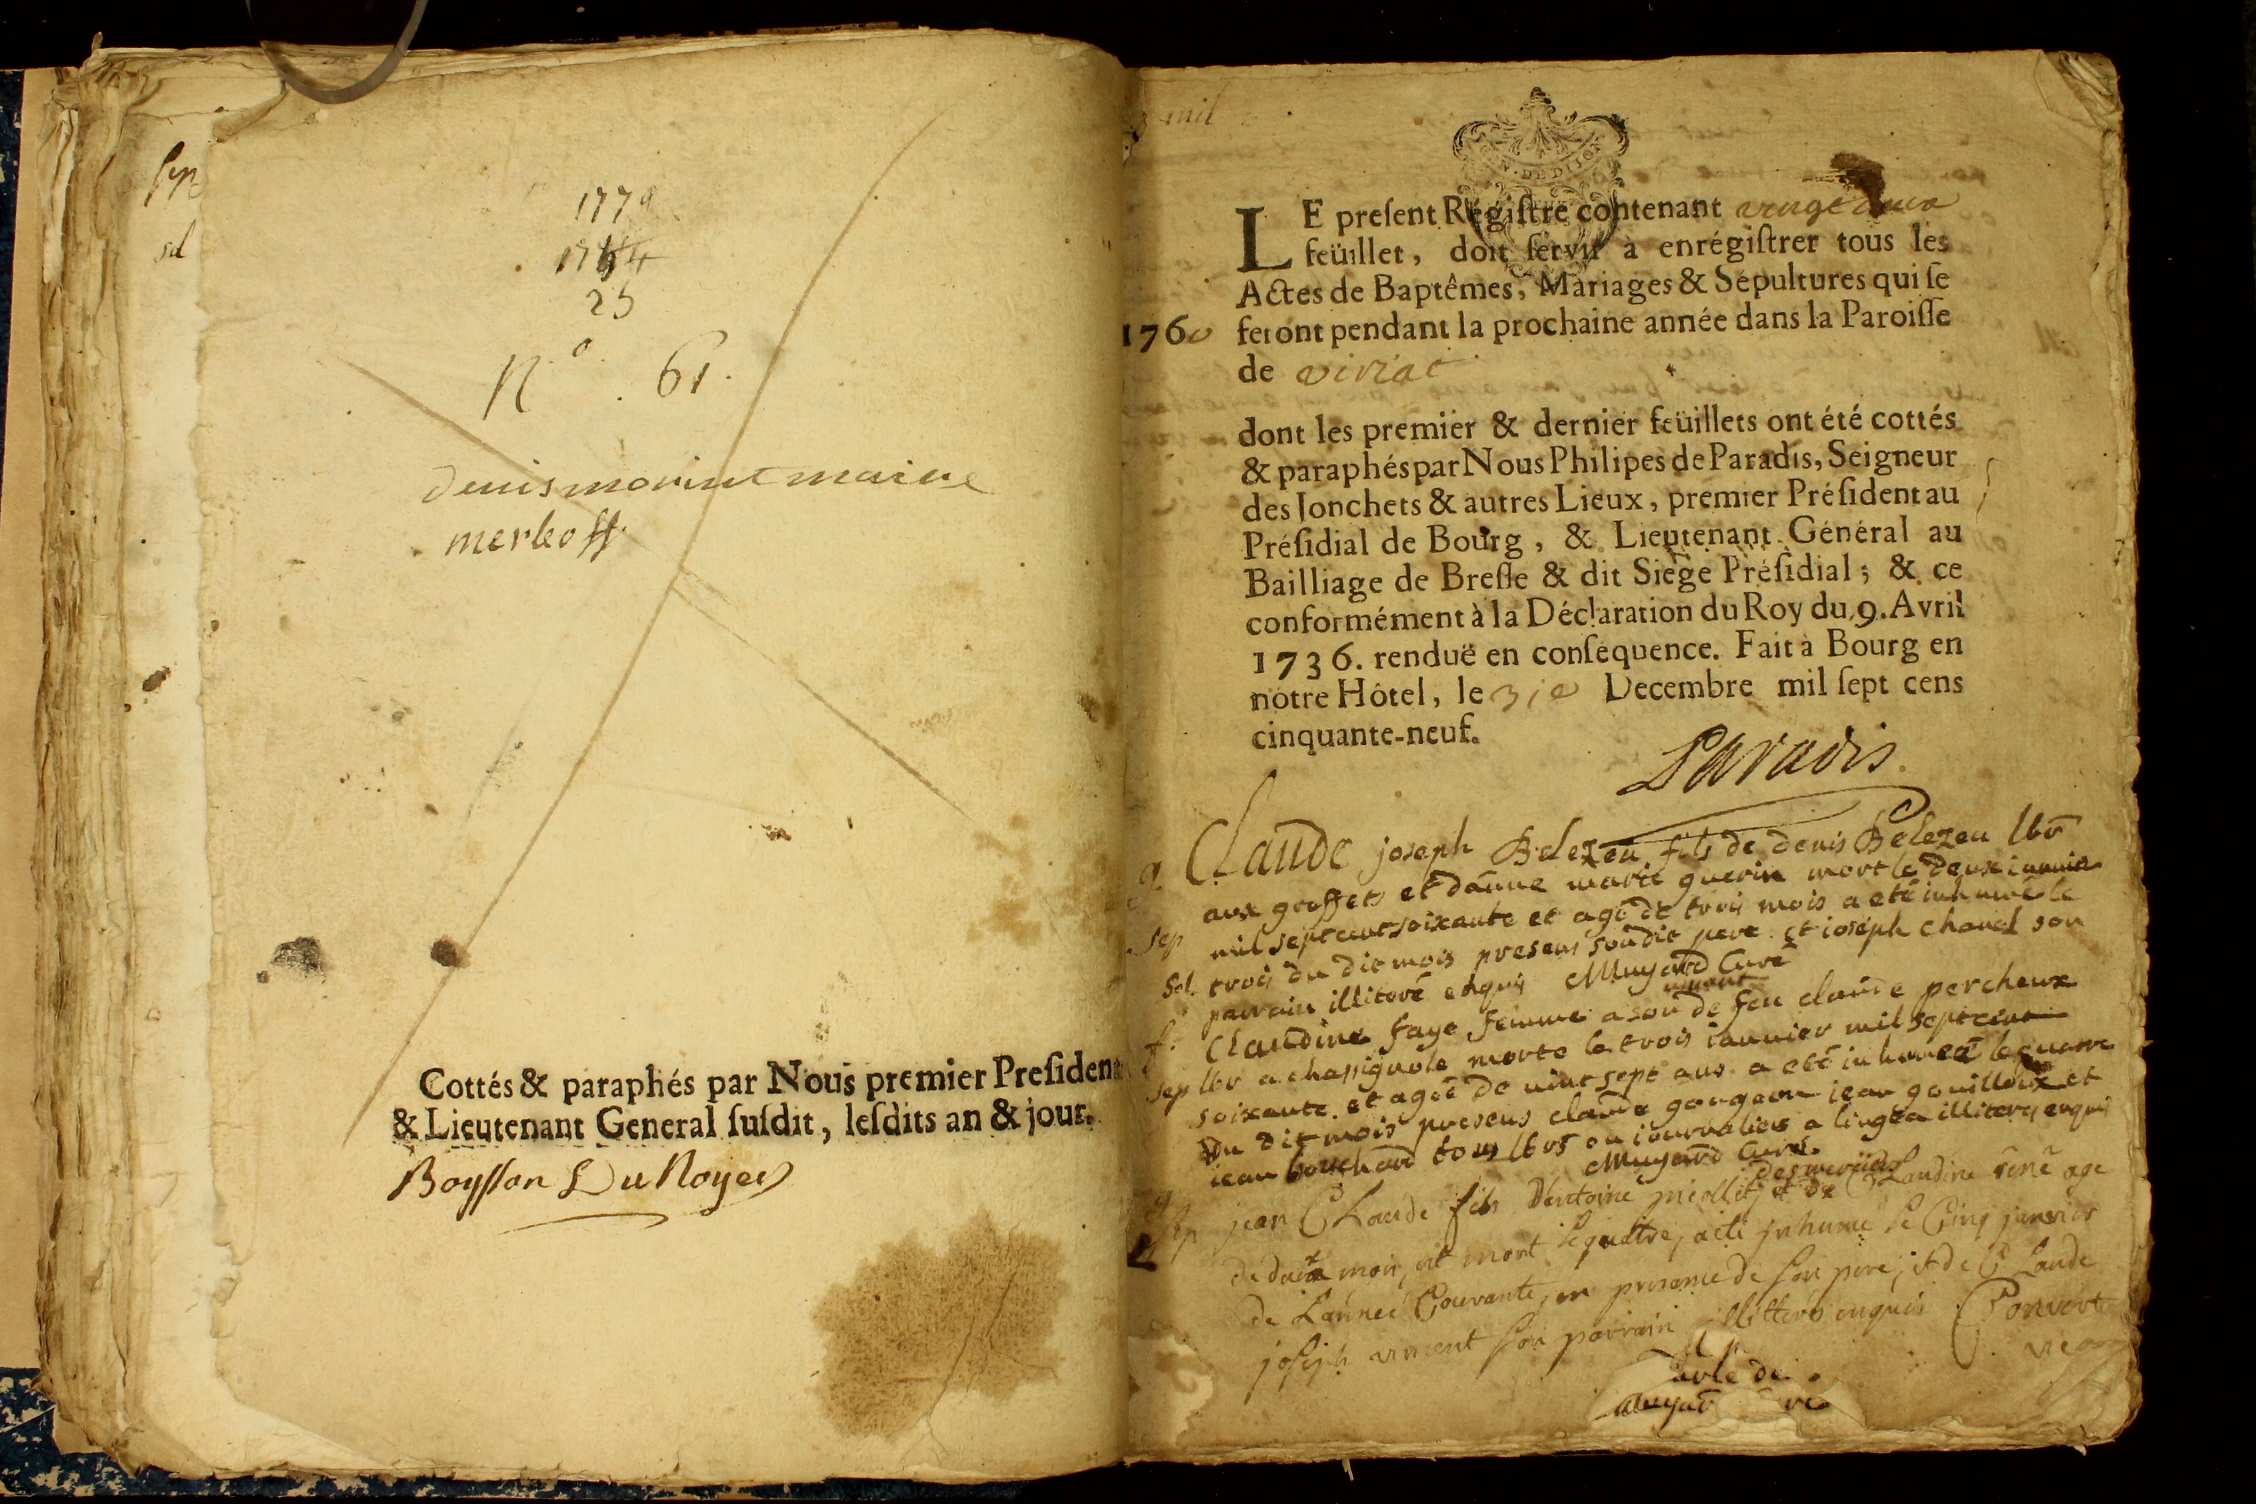 sep
sd
1779
1754
25
N.° 61.
denis morint maine
merleoff.
Cottés & paraphés par Nous premier Presiden
& Lieutenant General suſdit, leſdits an & jour.
Boysson Du Noyer
mil
GEN. DE DIJON
LE preſent Régiſtre contenant vingt deux
feüillet, doit ſervir à enrégiſtrer tous les
Actes de Baptêmes, Mariages & Sépultures qui ſe
1760 feront pendant la prochaine année dans la Paroiſſe
de viriat
dont les premier & dernier feüillets ont été cottés
& paraphés par Nous Philipes de Paradis, Seigneur
des Jonchets & autres Lieux, premier Préſident au
Préſidial de Bourg, & Lieutenant Général au
Bailliage de Breſſe & dit Siége Préſidial; & ce
conformément à la Déclaration du Roy du 9. Avril
1736. renduë en conſéquence. Fait à Bourg en
nôtre Hôtel, le 31e Decembre mil ſept cens
cinquante-neuf.
Paradis.
g. Claude joseph Belezeu fils de denis Belezeu lbr
aux greffets et danne marie guerin mort le deux iannier
sep mil sept cent soixante et agé de trois mois a eté inhumé le
sd. trois du dit mois presens son dit pere et ioseph chanel son
parrain illiteré enquis Muyard Curé
f. Claudine faye femme a son vivant de feu claude percheux
sep lbr a chassignole morte le trois iannier mil sept cent
soixante et agée de vint sept ans a eté inhumeé le quatre
Du dit mois presens claude gongeon iean gouilloux et
iean bouchard tous lbrs ou iournaliers a lingéa illiterés enquis
Muyard Curé.
g
sep jean Claude fils d'Antoine picollet, et de Claudine réné agé
de deux mois, est mort le quatre, a eté inhumé le Cinq janvier
de L'année Courante, en presence de son pere, et de Claude
joseph vincent son parrain illitterés enquis Convert
vic
Muyard